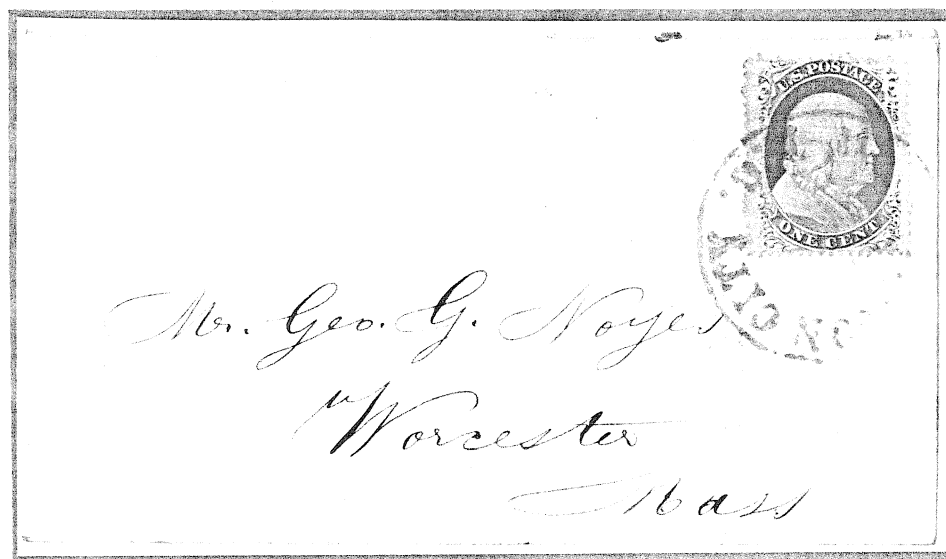 U.S. POSTAGE
ONE CENT
CITY
Mr. Geo. G. Noyes
Worcester
Mass